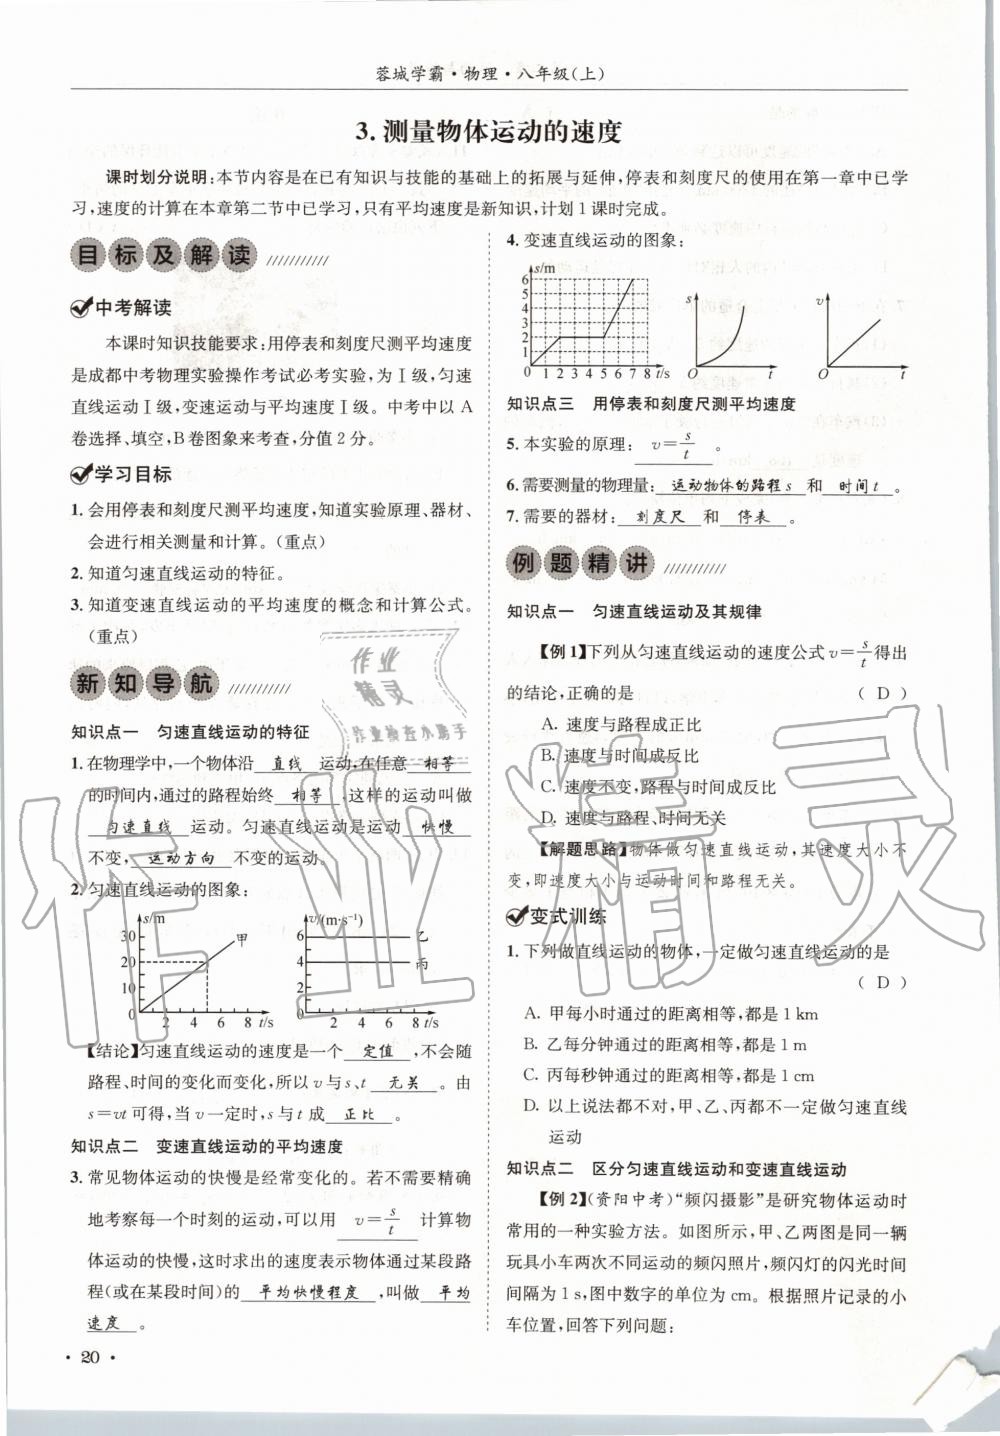 蓉城学霸·物理·八年级(上)
3.测量物体运动的速度
课时划分说明:本节内容是在已有知识与技能的基础上的拓展与延伸,停表和刻度尺的使用在第一章中已学
习,速度的计算在本章第二节中已学习,只有平均速度是新知识,计划1课时完成。
目标及解读
中考解读
本课时知识技能要求:用停表和刻度尺测平均速度
是成都中考物理实验操作考试必考实验,为Ⅰ级,匀速
直线运动Ⅰ级,变速运动与平均速度Ⅰ级。中考中以A
卷选择、填空,B卷图象来考查,分值2分。
学习目标
1.会用停表和刻度尺测平均速度,知道实验原理、器材、
会进行相关测量和计算。(重点)
2.知道匀速直线运动的特征。
3.知道变速直线运动的平均速度的概念和计算公式。
(重点)
新知导航
知识点一 匀速直线运动的特征
1.在物理学中,一个物体沿 直线 运动,在任意 相等
的时间内,通过的路程始终 相等 ,这样的运动叫做
匀速直线 运动。匀速直线运动是运动 快慢
不变, 运动方向 不变的运动。
2.匀速直线运动的图象:
s/m
30
20
10
0
2 4 6 8 t/s
甲
v/(m·s⁻¹)
6
4
2
0
2 4 6 8 t/s
乙
丙
【结论】匀速直线运动的速度是一个 定值 ,不会随
路程、时间的变化而变化,所以v与s、t 无关 。由
s=vt可得,当v一定时,s与t成 正比 。
知识点二 变速直线运动的平均速度
3.常见物体运动的快慢是经常变化的。若不需要精确
地考察每一个时刻的运动,可以用 v=s/t 计算物
体运动的快慢,这时求出的速度表示物体通过某段路
程(或在某段时间)的 平均快慢程度 ,叫做 平均
速度 。
4.变速直线运动的图象:
s/m
6
5
4
3
2
1
0 1 2 3 4 5 6 7 8 t/s
s
O
t
v
O
t
知识点三 用停表和刻度尺测平均速度
5.本实验的原理: v=s/t 。
6.需要测量的物理量: 运动物体的路程s 和 时间t 。
7.需要的器材: 刻度尺 和 停表 。
例题精讲
知识点一 匀速直线运动及其规律
【例1】下列从匀速直线运动的速度公式v=s/t得出
的结论,正确的是 ( D )
A. 速度与路程成正比
B. 速度与时间成反比
C. 速度不变,路程与时间成反比
D. 速度与路程、时间无关
【解题思路】物体做匀速直线运动,其速度大小不
变,即速度大小与运动时间和路程无关。
变式训练
1.下列做直线运动的物体,一定做匀速直线运动的是
( D )
A. 甲每小时通过的距离相等,都是1 km
B. 乙每分钟通过的距离相等,都是1 m
C. 丙每秒钟通过的距离相等,都是1 cm
D. 以上说法都不对,甲、乙、丙都不一定做匀速直线
运动
知识点二 区分匀速直线运动和变速直线运动
【例2】(资阳中考)“频闪摄影”是研究物体运动时
常用的一种实验方法。如图所示,甲、乙两图是同一辆
玩具小车两次不同运动的频闪照片,频闪灯的闪光时间
间隔为1 s,图中数字的单位为cm。根据照片记录的小
车位置,回答下列问题:
·20·
作业
精灵
作业检查小助手
作业精灵